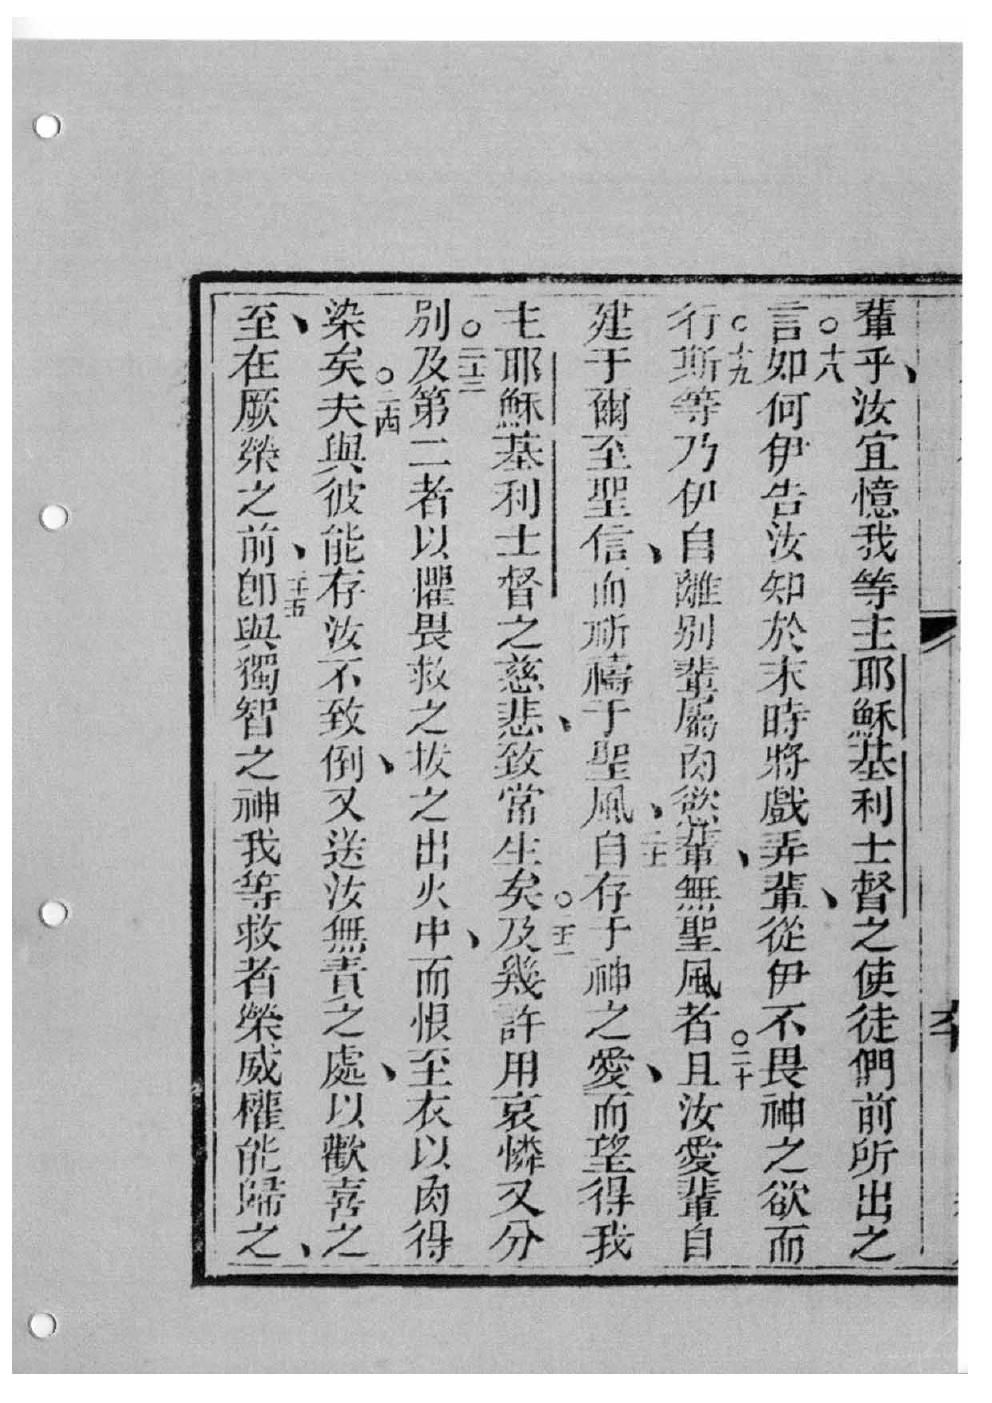 輩乎、汝宜憶我等主耶穌基利士督之使徒們前所出之
言○十八如何伊告汝知於末時將戲弄輩、從伊不畏神之欲而
行○十九斯等乃伊自離別輩屬肉慾輩、無聖風者○二十且汝愛輩自
建于爾至聖信、而祈禱于聖風、二十一自存于神之愛、而望得我
主耶穌基利士督之慈悲、致常生矣○二十二及幾許用哀憐又分
別○二十三及第二者以懼畏救之拔之出火中、而恨至衣以肉得
染矣○二十四夫與彼能存汝不致倒、又送汝無責之處、以歡喜之
至、在厥榮之前、二十五卽與獨智之神我等救者榮威權能歸之、